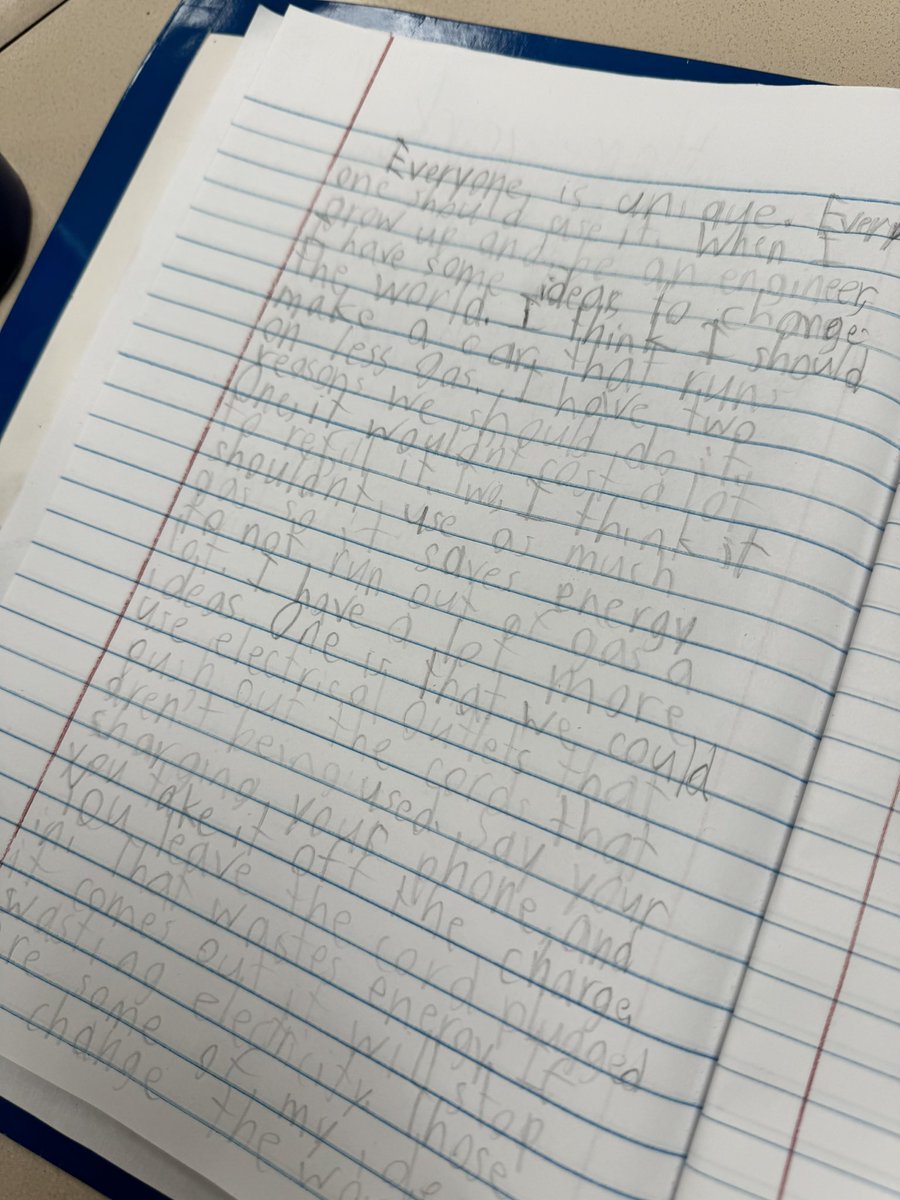 Everyone is unique. Every
one should use it. When I
grow up and be an engineer,
I have some ideas to change
the world. I think I should
make a car that runs
on less gas. I have two
reasons we should do it,
One, it wouldnt cost a lot
to refill it. Two, I think it
shouldnt use as much
gas so it saves energy
to not run out of gas a
lot. I have a lot more
ideas. One is that we could
use electrical outlets that
push out the cords that
arent being used. Say your
sharging your phone, and
You take it off the charge,
You leave the cord plugged
in. That wastes energy. If
it comes out it will stop
wasting electricity. Those
re some of my
change the